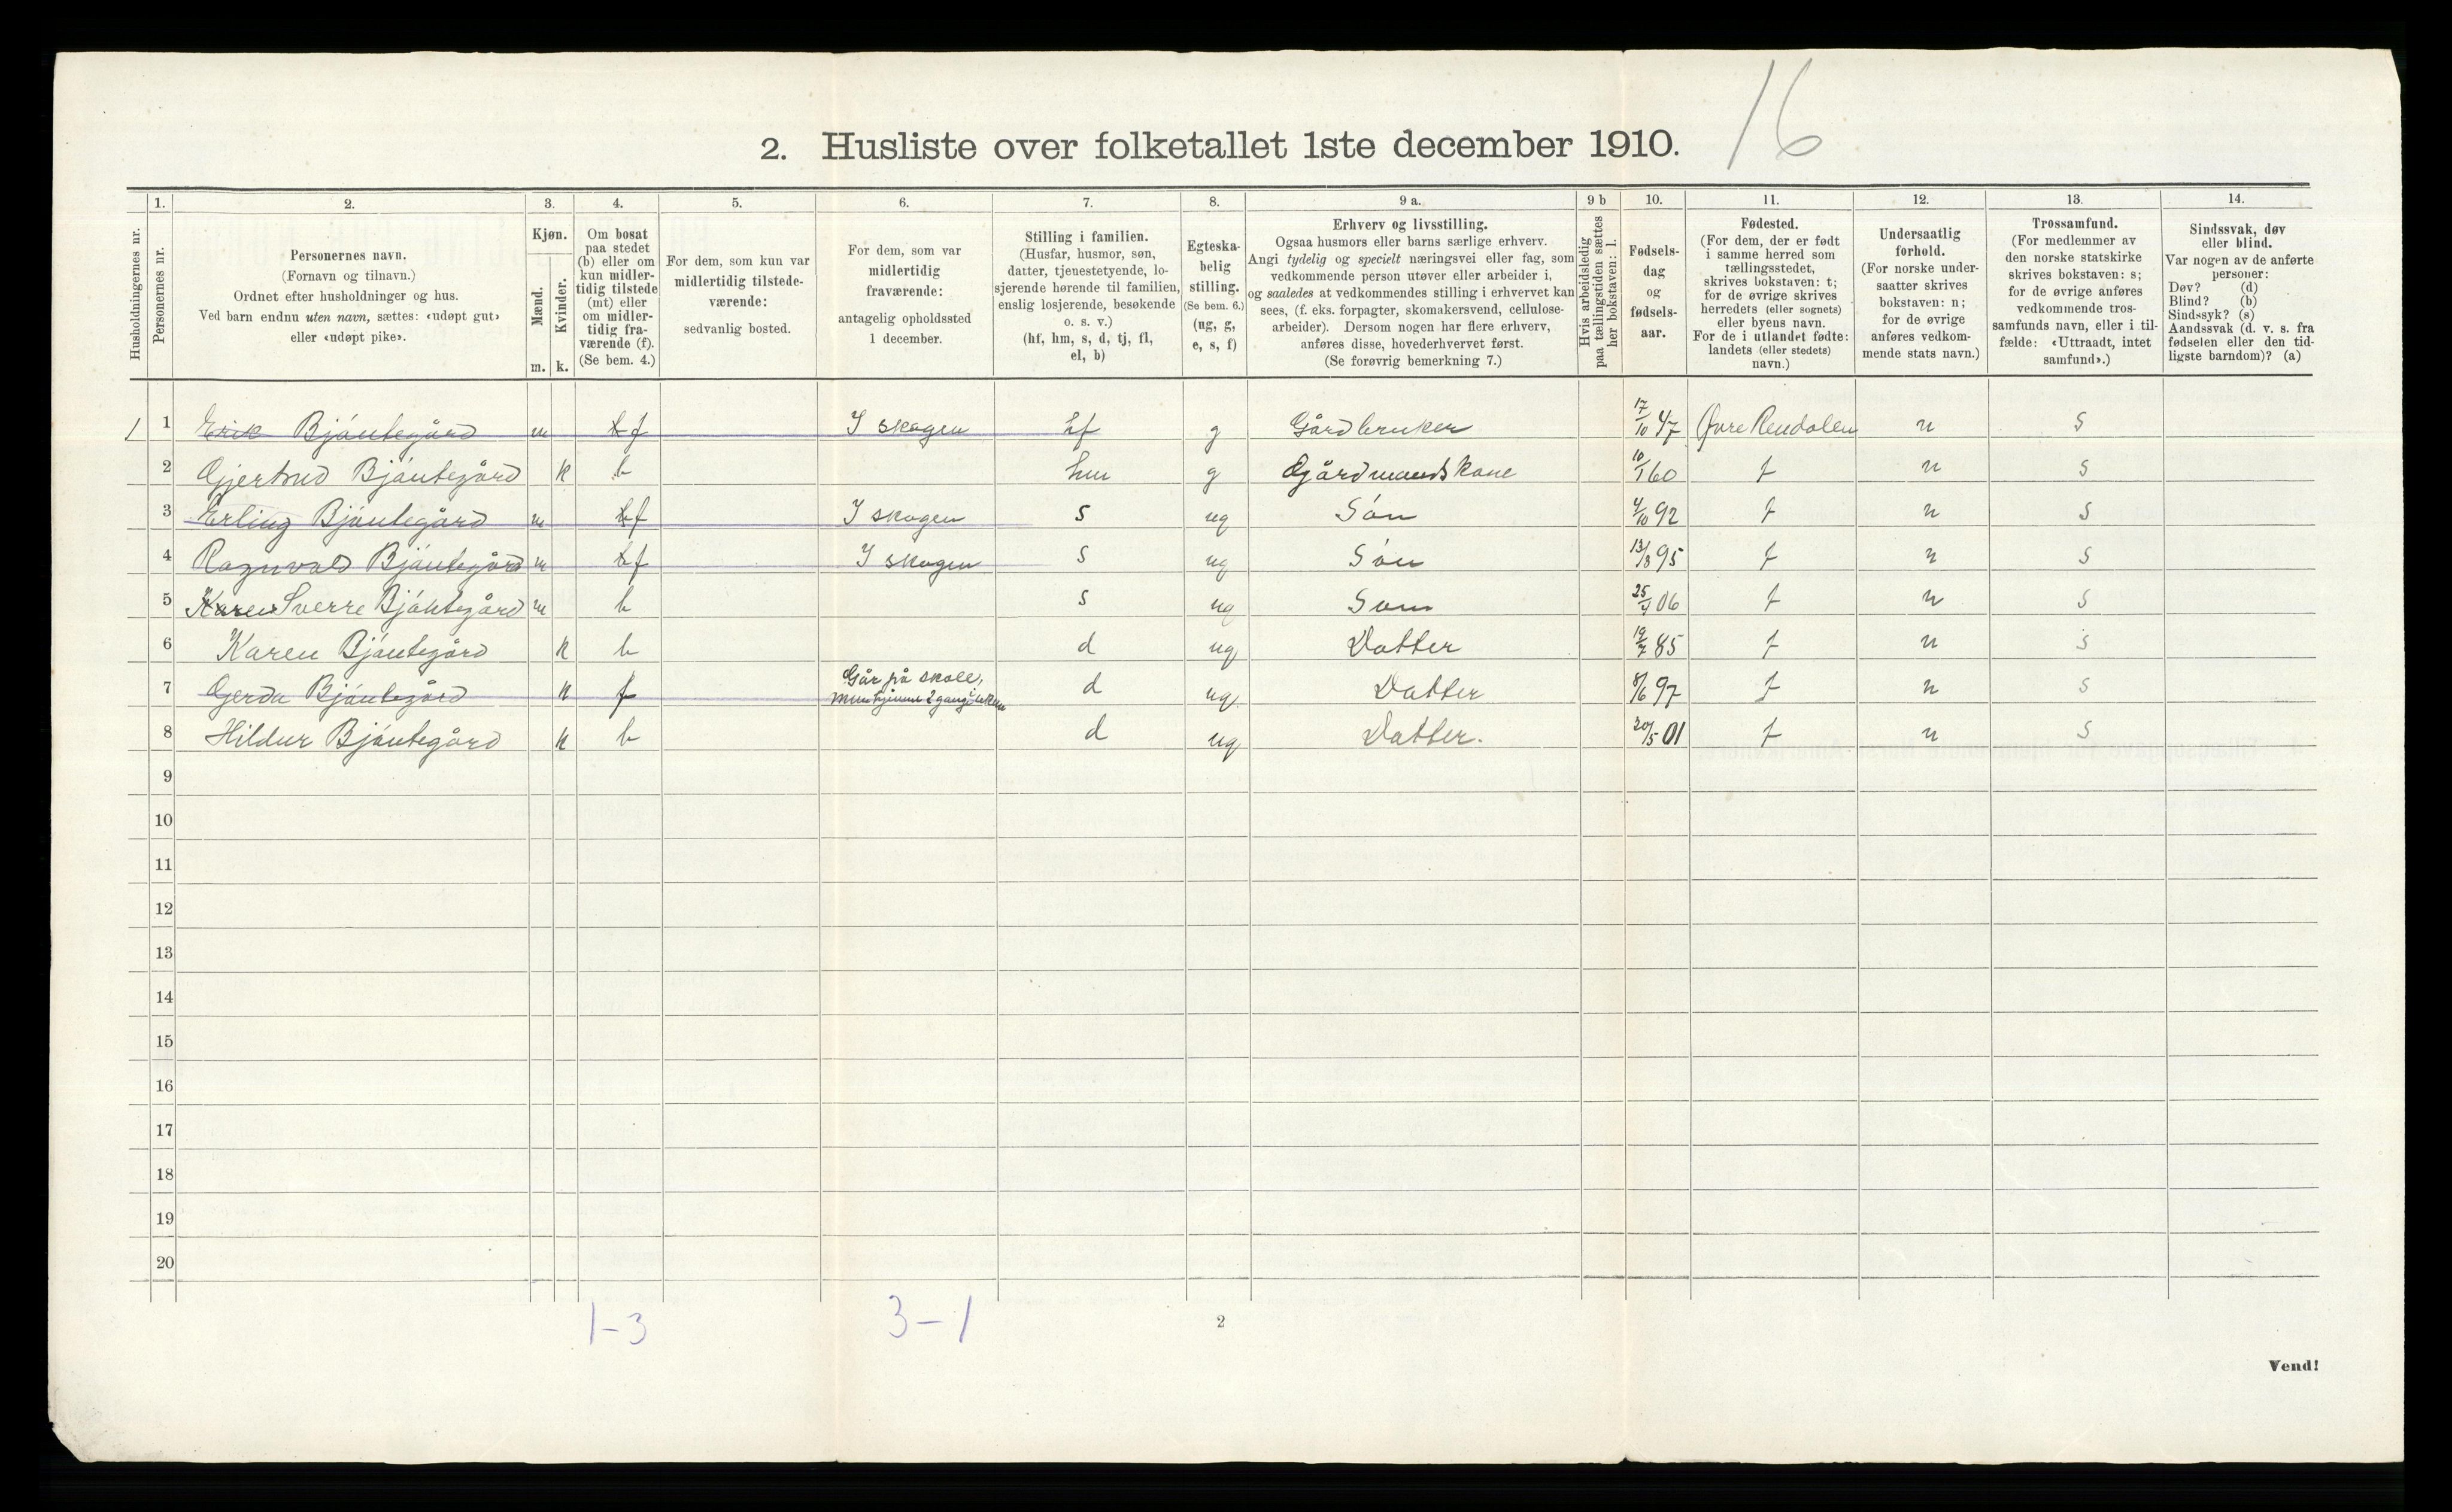 16
2. Husliste over folketallet 1ste december 1910.
Husholdningernes nr.
1. Personernes nr.
2. Personernes navn.
(Fornavn og tilnavn.)
Ordnet efter husholdninger og hus.
Ved barn endnu uten navn, sættes: «udøpt gut»
eller «udøpt pike».
3. Kjøn.
Mænd. m.
Kvinder. k.
4. Om bosat
paa stedet
(b) eller om
kun midler-
tidig tilstede
(mt) eller
om midler-
tidig fra-
værende (f).
(Se bem. 4.)
5. For dem, som kun var
midlertidig tilstede-
værende:
sedvanlig bosted.
6. For dem, som var
midlertidig
fraværende:
antagelig opholdssted
1 december.
7. Stilling i familien.
(Husfar, husmor, søn,
datter, tjenestetyende, lo-
sjerende hørende til familien,
enslig losjerende, besøkende
o. s. v.)
(hf, hm, s, d, tj, fl,
el, b)
8. Egteska-
belig
stilling.
(Se bem. 6.)
(ug, g,
e, s, f)
9 a. Erhverv og livsstilling.
Ogsaa husmors eller barns særlige erhverv.
Angi tydelig og specielt næringsvei eller fag, som
vedkommende person utøver eller arbeider i,
og saaledes at vedkommendes stilling i erhvervet kan
sees, (f. eks. forpagter, skomakersvend, cellulose-
arbeider). Dersom nogen har flere erhverv,
anføres disse, hovederhvervet først.
(Se forøvrig bemerkning 7.)
9 b Hvis arbeidsledig
paa tællingstiden sættes
her bokstaven: l.
10. Fødsels-
dag
og
fødsels-
aar.
11. Fødested.
(For dem, der er født
i samme herred som
tællingsstedet,
skrives bokstaven: t;
for de øvrige skrives
herredets (eller sognets)
eller byens navn.
For de i utlandet fødte:
landets (eller stedets)
navn.)
12. Undersaatlig
forhold.
(For norske under-
saatter skrives
bokstaven: n;
for de øvrige
anføres vedkom-
mende stats navn.)
13. Trossamfund.
(For medlemmer av
den norske statskirke
skrives bokstaven: s;
for de øvrige anføres
vedkommende tros-
samfunds navn, eller i til-
fælde: «Uttraadt, intet
samfund».)
14. Sindssvak, døv
eller blind.
Var nogen av de anførte
personer:
Døv? (d)
Blind? (b)
Sindssyk? (s)
Aandssvak (d. v. s. fra
fødselen eller den tid-
ligste barndom)? (a)
1 1 Erik Bjøntegård m b f I skogen hf g Gårdbruker 17/10 47 Øvre Rendalen n s
2 Gjertrud Bjøntegård k b hm g Gårdmandskone 10/1 60 t n s
3 Erling Bjøntegård m b f I skogen s ug Søn 4/10 92 t n s
4 Ragnvald Bjøntegård m b f I skogen s ug Søn 13/8 95 t n s
5 Karen Sverre Bjøntegård m b s ug Søn 25/4 06 t n s
6 Karen Bjøntegård k b d ug Datter 19/7 85 t n s
7 Gerda Bjøntegård k f Går på skole, men hjemme 2 gang i uken d ug Datter 8/6 97 t n s
8 Hildur Bjøntegård k b d ug Datter. 20/5 01 t n s
9
10
11
12
13
14
15
16
17
18
19
20
1-3 3-1
2
Vend!